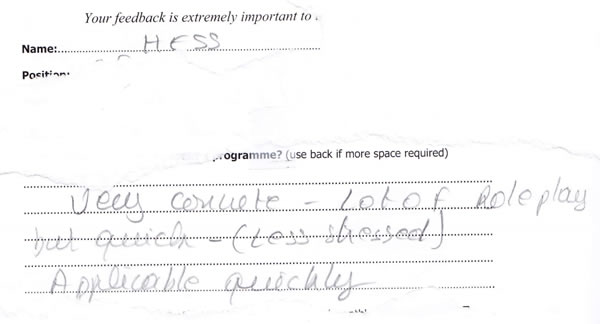 Your feedback is extremely important to
Name: HESS
Position:
ogramme? (use back if more space required)
Very concrete - lot of Roleplay
but quick - (Less stressed)
Applicable quickly